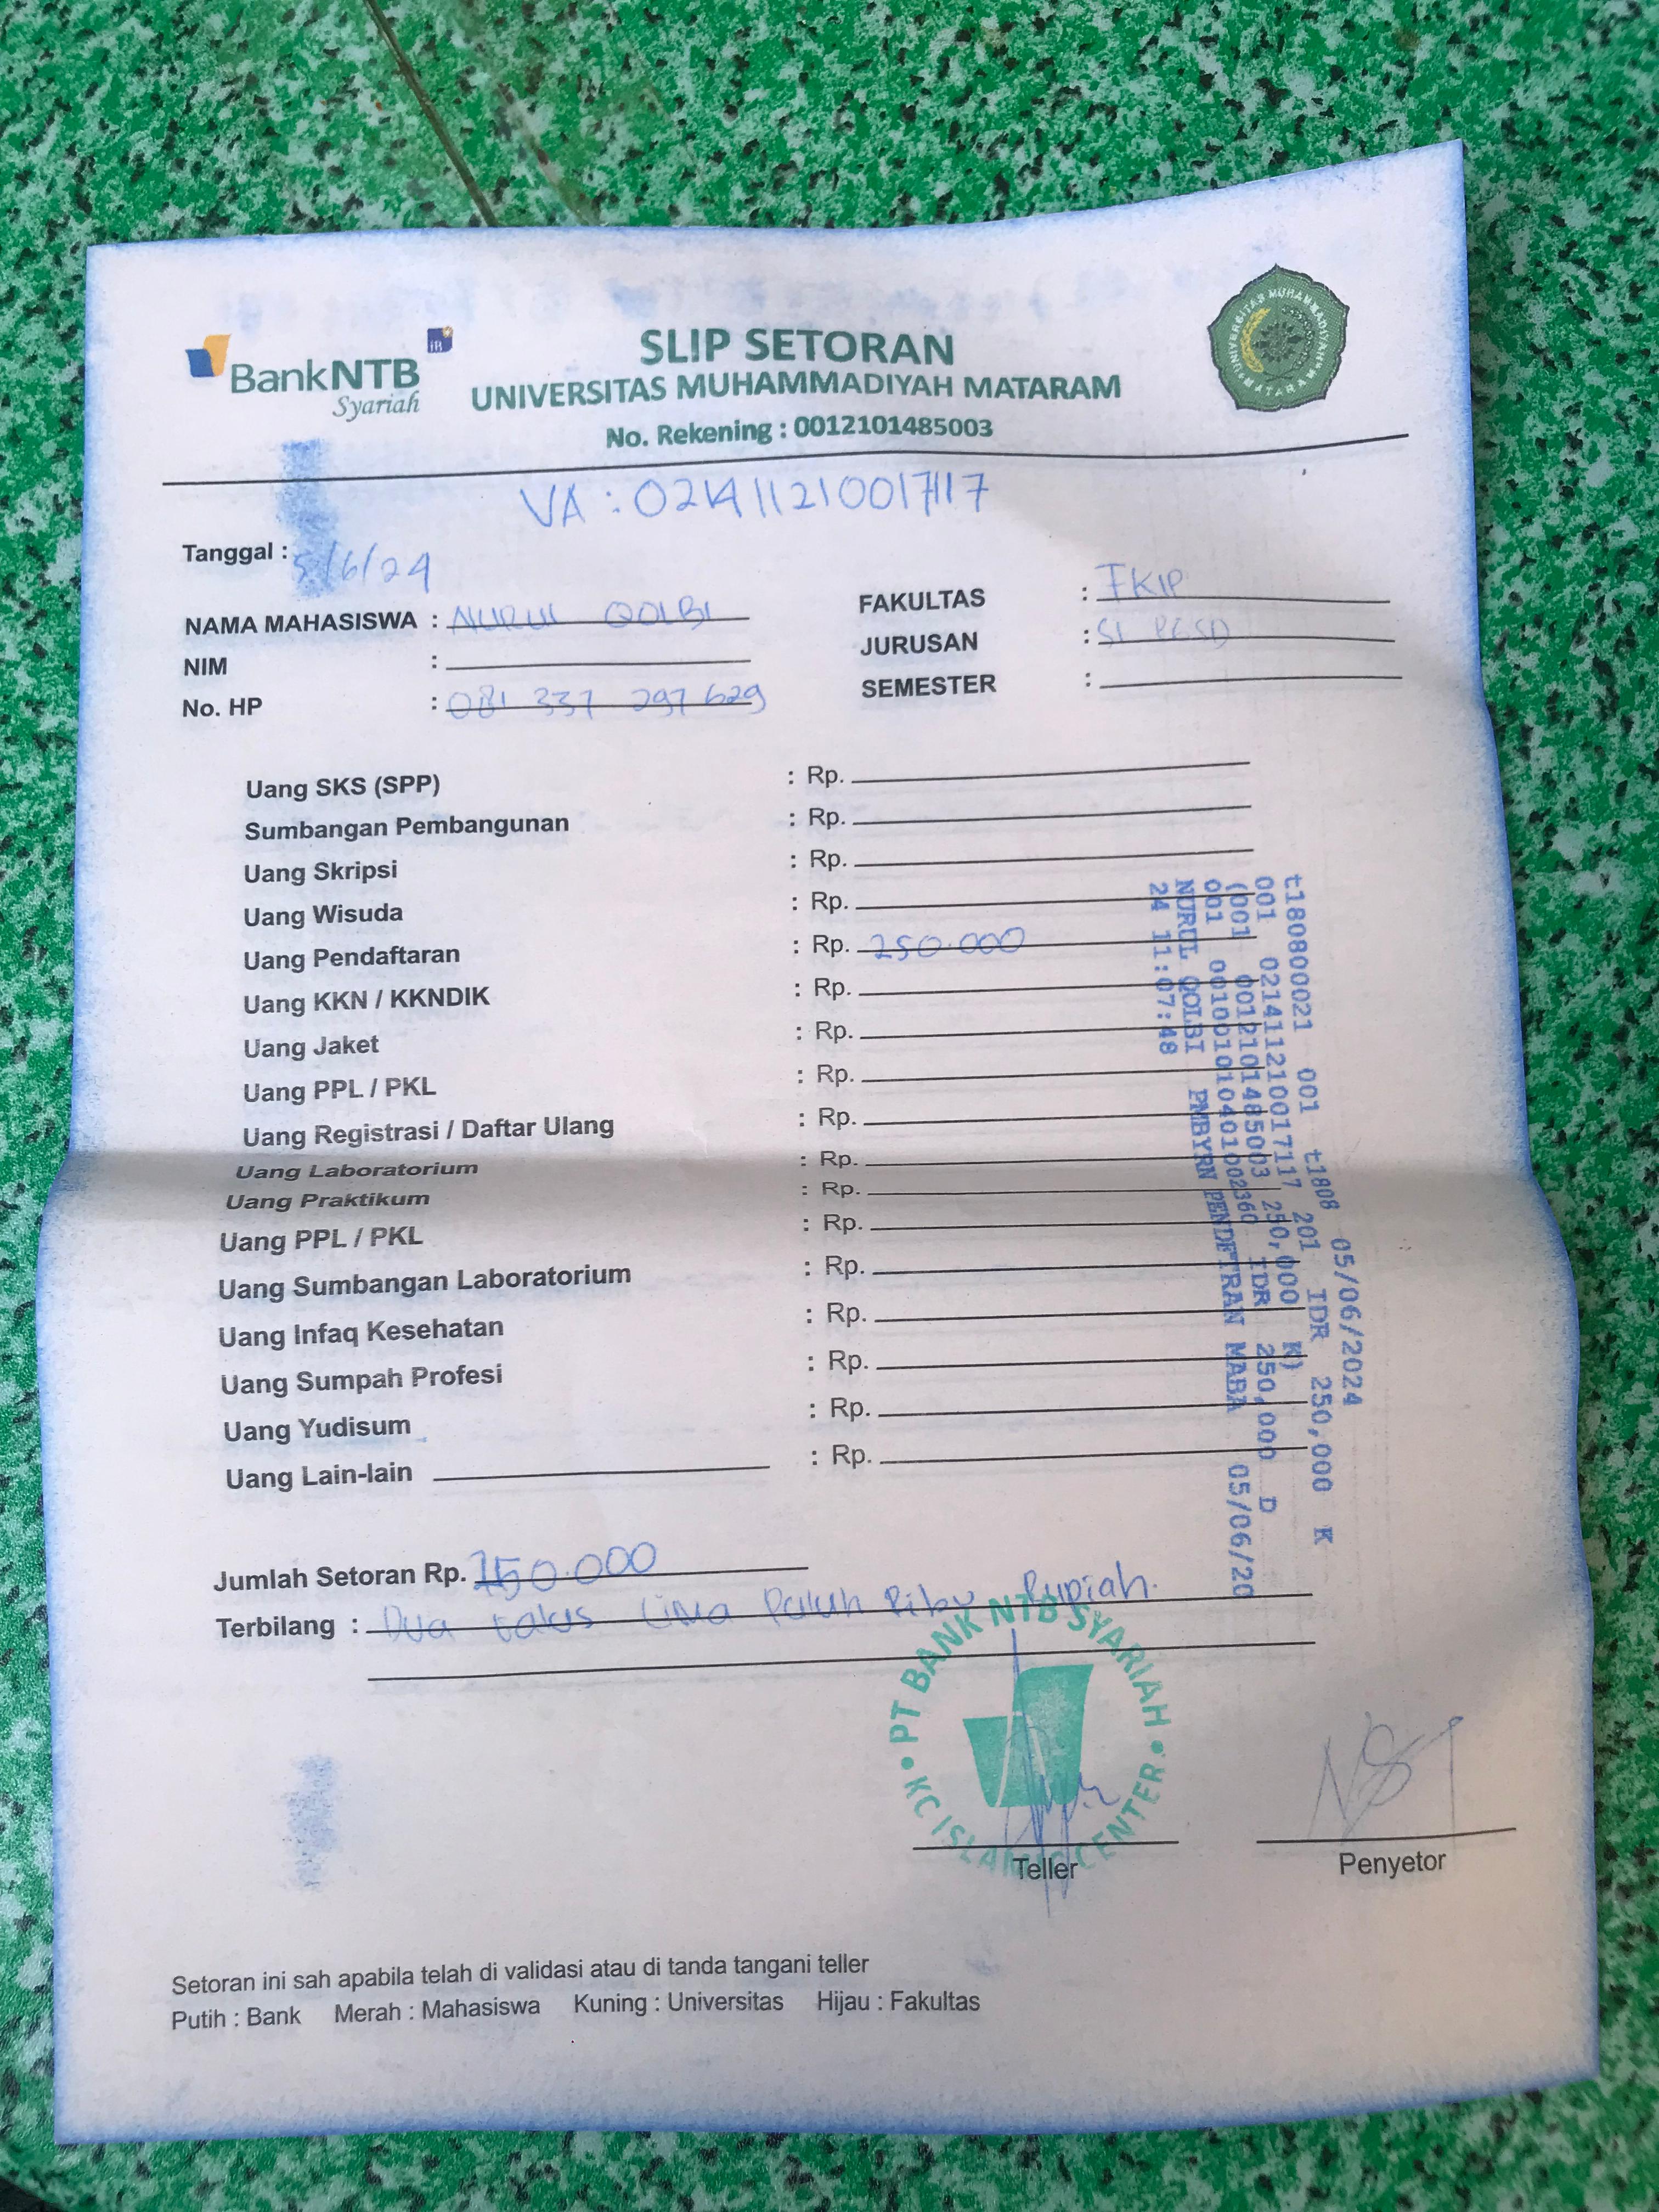 BankNTB
Syariah
iB
SLIP SETORAN
UNIVERSITAS MUHAMMADIYAH MATARAM
No. Rekening : 0012101485003
UNIVERSITAS MUHAMMADIYAH MATARAM
VA : 021411210017117
Tanggal : 5/6/24
NAMA MAHASISWA : NURUL QOLBI
NIM :
No. HP : 081 337 297 629
FAKULTAS : FKIP
JURUSAN : S1 PGSD
SEMESTER :
Uang SKS (SPP) : Rp.
Sumbangan Pembangunan : Rp.
Uang Skripsi : Rp.
Uang Wisuda : Rp.
Uang Pendaftaran : Rp. 250.000
Uang KKN / KKNDIK : Rp.
Uang Jaket : Rp.
Uang PPL / PKL : Rp.
Uang Registrasi / Daftar Ulang : Rp.
Uang Laboratorium : Rp.
Uang Praktikum : Rp.
Uang PPL / PKL : Rp.
Uang Sumbangan Laboratorium : Rp.
Uang Infaq Kesehatan : Rp.
Uang Sumpah Profesi : Rp.
Uang Yudisum : Rp.
Uang Lain-lain : Rp.
t180800021 001 t1808 05/06/2024
001 021411210017117 201 IDR 250,000 K
(001 0012101485003 250,000 K)
001 001001010401002360 IDR 250,000 D
NURUL QOLBI PMBYRN PENDFTRAN MABA 05/06/20
24 11:07:48
Jumlah Setoran Rp. 250.000
Terbilang : Dua ratus Lima Puluh Ribu Rupiah.
PT BANK NTB SYARIAH
KC ISLAMIC CENTER
Teller
Penyetor
Setoran ini sah apabila telah di validasi atau di tanda tangani teller
Putih : Bank Merah : Mahasiswa Kuning : Universitas Hijau : Fakultas